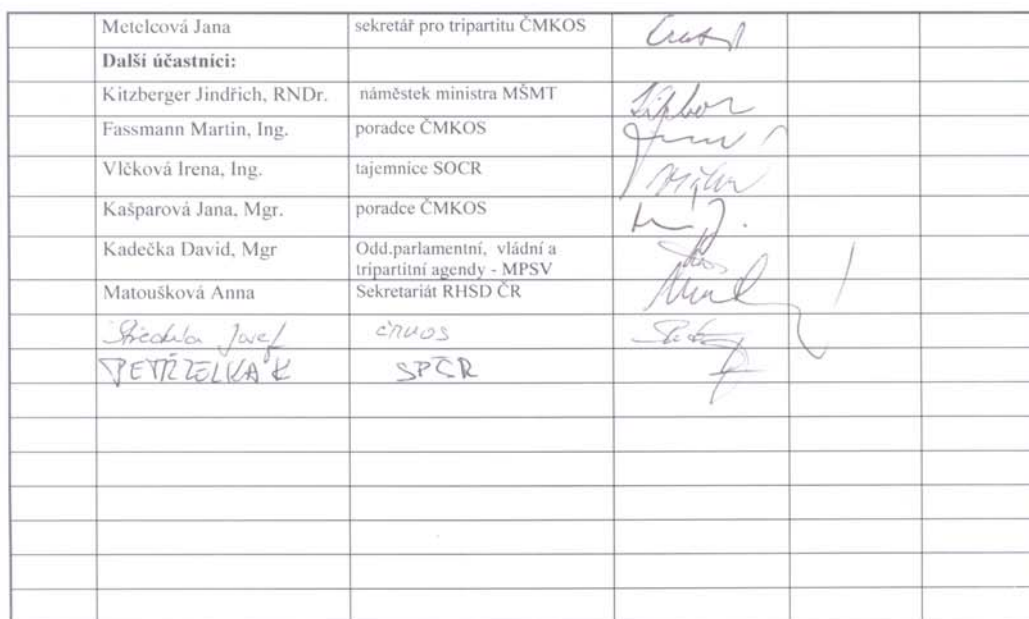 Metelcová Jana sekretář pro tripartitu ČMKOS
Další účastníci:
Kitzberger Jindřich, RNDr. náměstek ministra MŠMT
Fassmann Martin, Ing. poradce ČMKOS
Vlčková Irena, Ing. tajemnice SOCR
Kašparová Jana, Mgr. poradce ČMKOS
Kadečka David, Mgr Odd.parlamentní, vládní a
tripartitní agendy - MPSV
Matoušková Anna Sekretariát RHSD ČR
Středula Josef ČMKOS
PETRŽELKA K SPČR